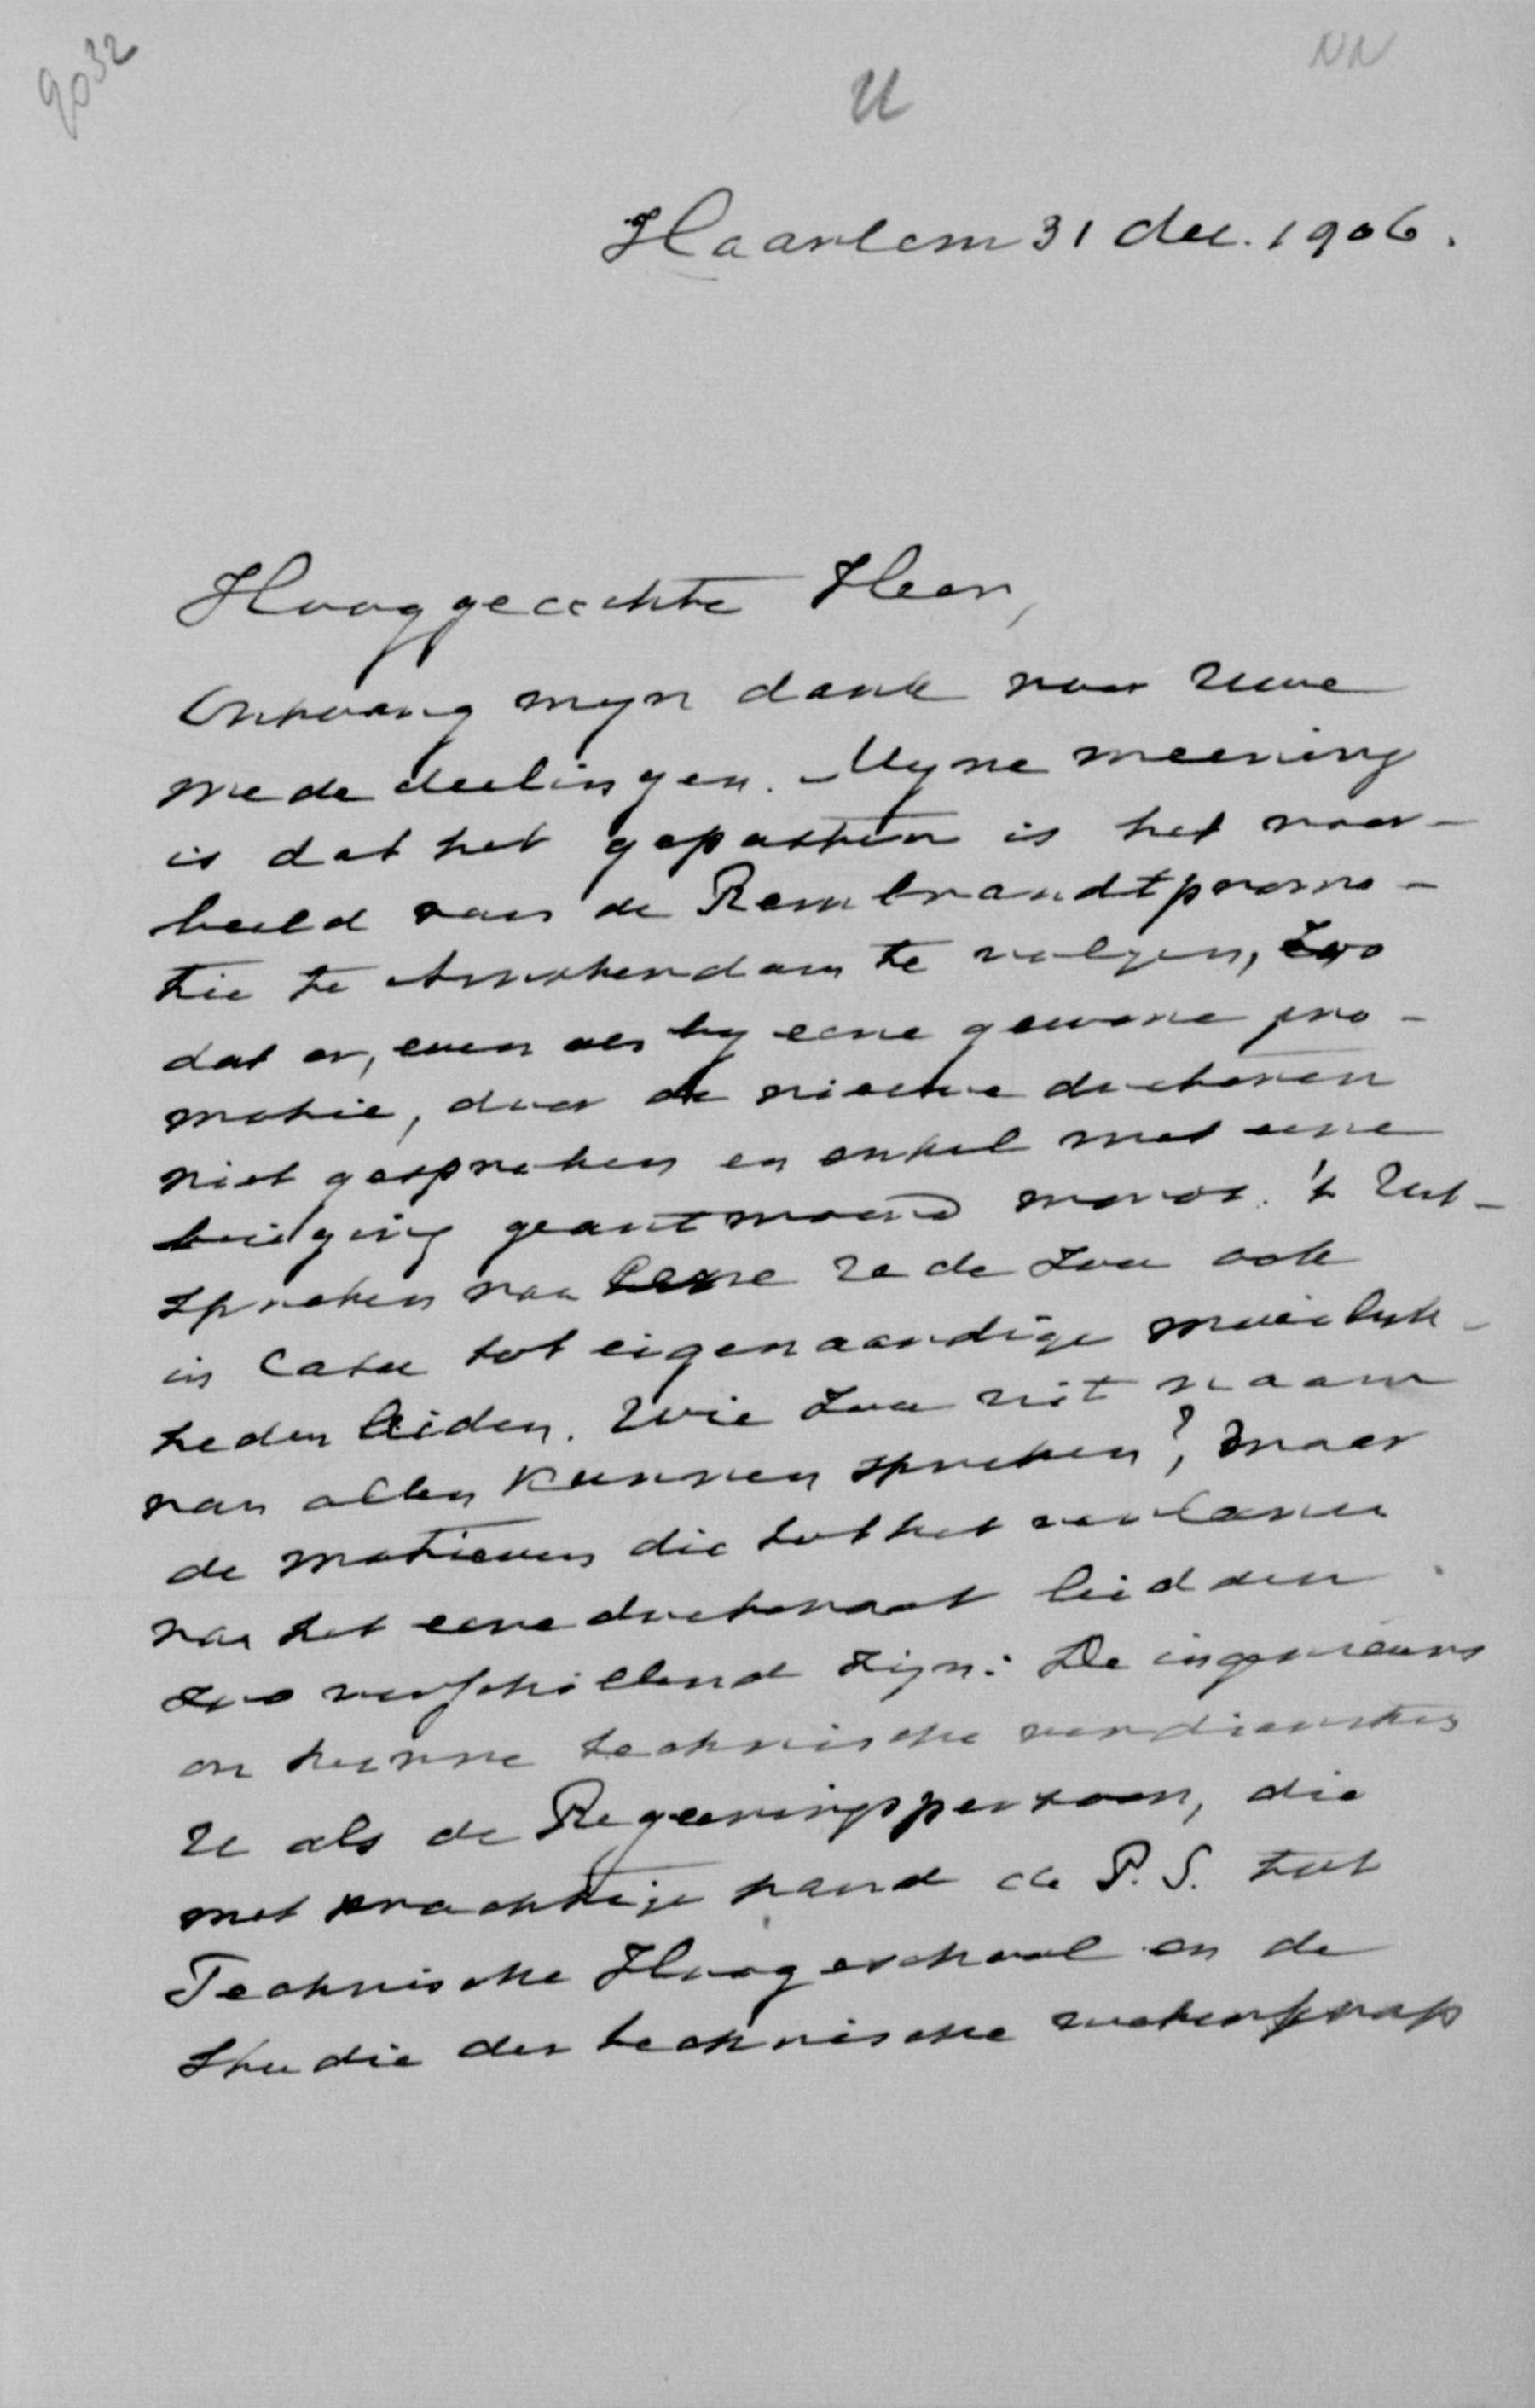 9032
U
NN
Haarlem 31 dec. 1906.
Hooggeachte Heer,
Ontvang mijn dank voor Uwe
mededeelingen. Myne meening
is dat het gepasten is het voor-
beeld van de Rembrandtpromo-
tie te Amsterdam te volgen, zoo
dat er, even als by eene gewone pro-
motie, door de nieuwe doctoren
niet gesproken en enkel met eene
buiging geantwoord wordt. 't Uit-
spreken van eene rede zou ook
in casu tot eigenaardige moeilyk-
heden leiden. Wie zou uit naam
van allen kunnen spreken?, maar
de motieven die tot het verleenen
van het eeredoctoraat leidden
zoo verschillend zijn: De ingenieurs
om hunne technische verdiensten
U als de Regeeringspersoon, die
met krachtige hand de P. S. tot
Technische Hoogeschool en de
studie der technische wetenschap